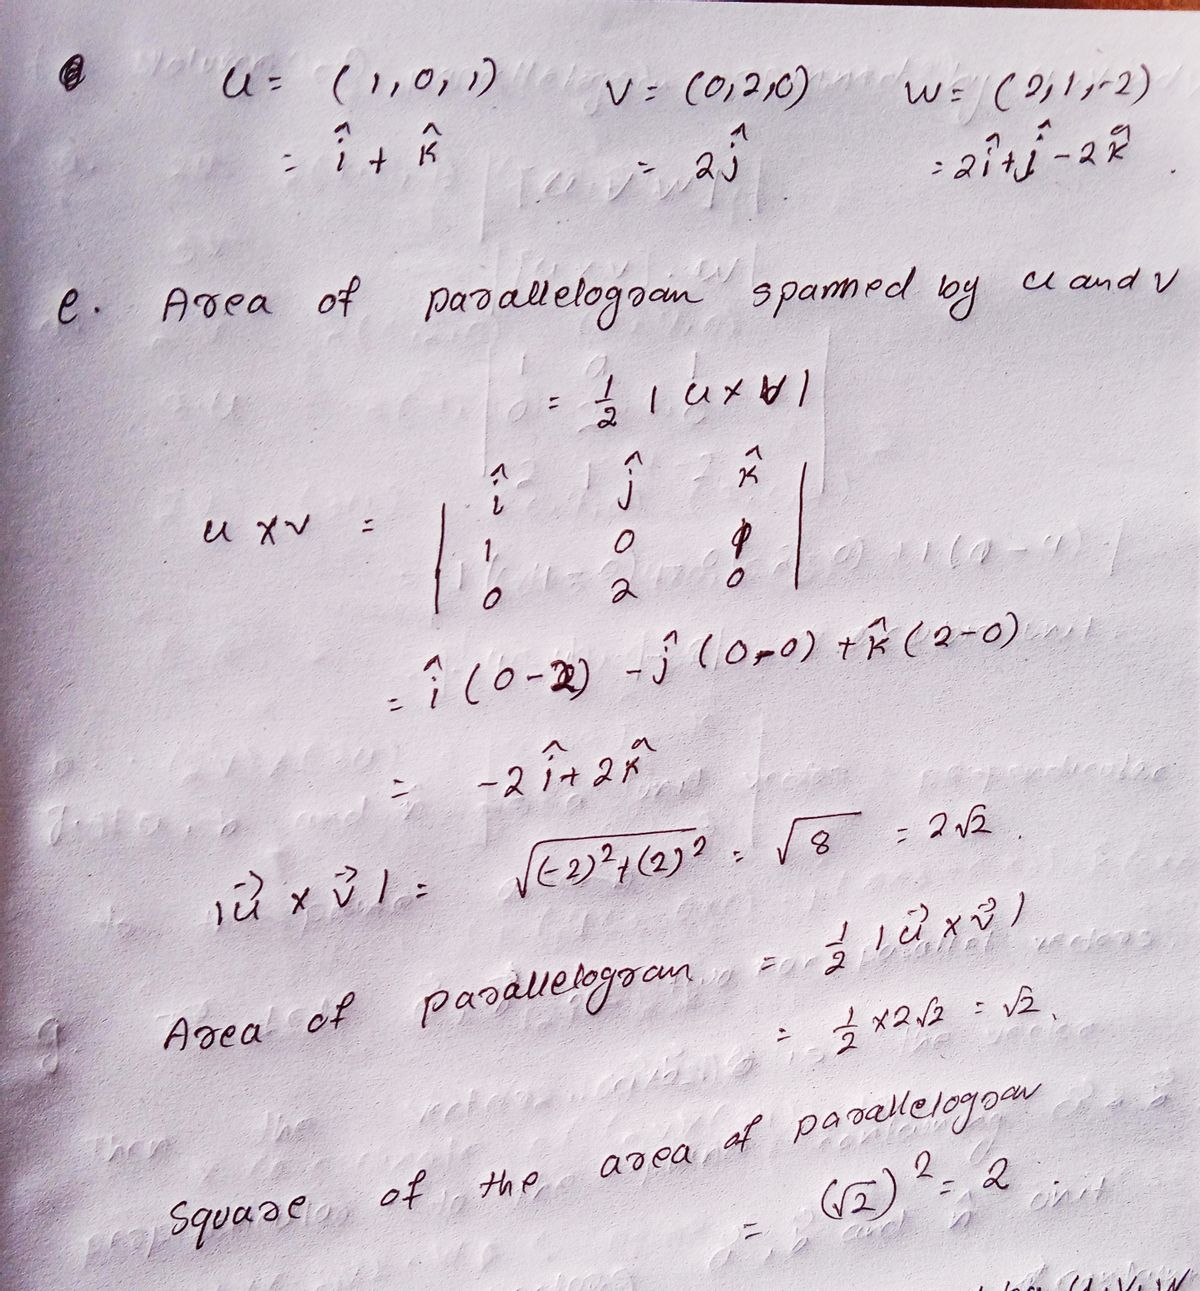 u = (1,0,1) v = (0,2,0) w = (2,1,-2)
= î + k̂ = 2ĵ = 2î+ĵ-2k̂
e. Area of parallelogran spanned by u and v
= 1/2 | u × v |
î ĵ k̂
u × v = | 1 0 1 |
0 2 0
= î (0-2) - ĵ (0-0) + k̂ (2-0)
= -2î + 2k̂
|u⃗ × v⃗| = √(-2)²+(2)² = √8 = 2√2 .
Area of parallelogran = 1/2 |u⃗ × v⃗|
= 1/2 ×2√2 = √2.
Square of the area of parallelogran
= (√2)² = 2 .
u, v, w